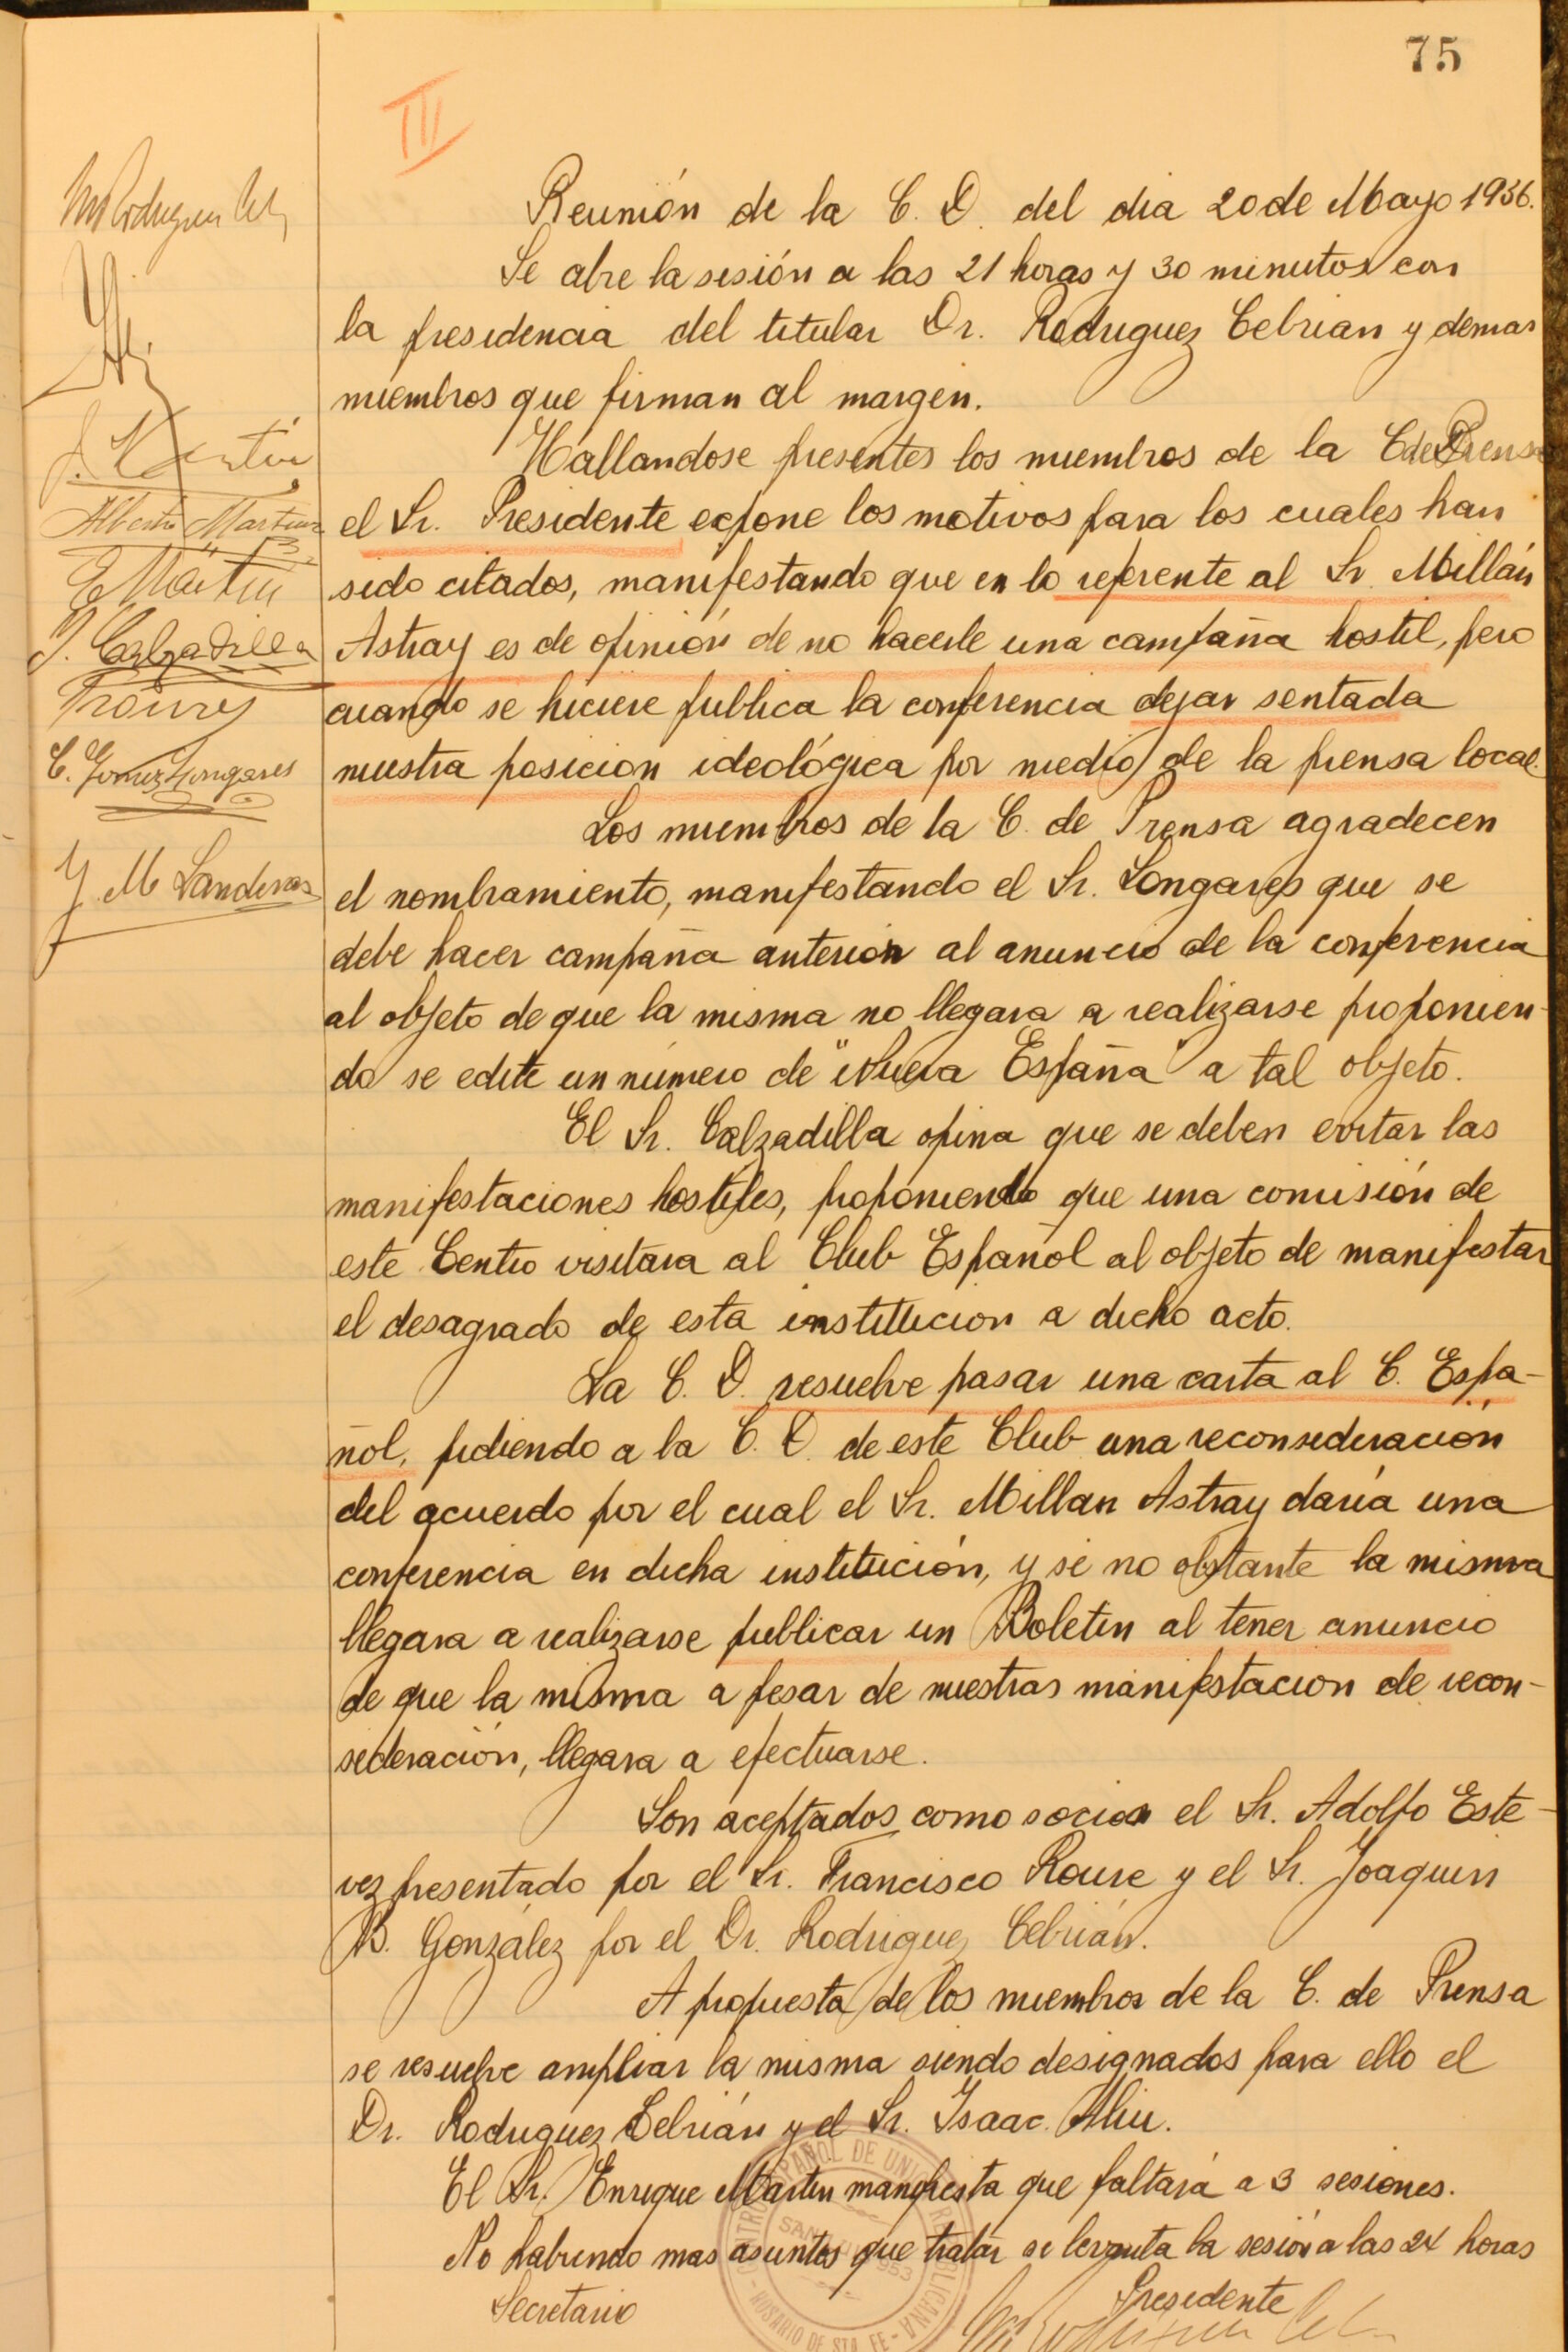 75
III
Reunión de la C. D. del dia 20 de Mayo 1936.
Se abre la sesión a las 21 horas y 30 minutos con
la presidencia del titular Dr. Rodriguez Cebrian y demas
miembros que firman al margen.
Hallandose presentes los miembros de la C de Prensa
el Sr. Presidente expone los motivos para los cuales han
sido citados, manifestando que en lo referente al Sr. Millán
Astray es de opinión de no hacerle una campaña hostil, pero
cuando se hiciere publica la conferencia dejar sentada
nuestra posicion ideológica por medio de la prensa local.
Los miembros de la C. de Prensa agradecen
el nombramiento, manifestando el Sr. Longares que se
debe hacer campaña anterior al anuncio de la conferencia
al objeto de que la misma no llegara a realizarse proponien-
do se edite un número de "Nueva España" a tal objeto.
El Sr. Calzadilla opina que se deben evitar las
manifestaciones hostiles, proponiendo que una comisión de
este Centro visitara al Club Español al objeto de manifestar
el desagrado de esta institucion a dicho acto.
La C. D. resuelve pasar una carta al C. Espa-
ñol, pidiendo a la C. D. de este Club una reconsideración
del acuerdo por el cual el Sr. Millan Astray daría una
conferencia en dicha institución, y si no obstante la misma
llegara a realizarse publicar un Boletin al tener anuncio
de que la misma a pesar de nuestras manifestacion de recon-
sideración, llegara a efectuarse.
Son aceptados como socios el Sr. Adolfo Este-
vez presentado por el Sr. Francisco Roure y el Sr. Joaquin
B. González por el Dr. Rodriguez Cebrián.
A propuesta de los miembros de la C. de Prensa
se resuelve ampliar la misma siendo designados para ello el
Dr. Rodriguez Cebrián y el Sr. Isaac
El Sr. Enrique Martin manifiesta que faltará a 3 sesiones.
No habiendo mas asuntos que tratar se levanta la sesión a las 24 horas
Secretario
Presidente
M RodriguezCeb
J. Martin
Alberto Martinez
E Martin
J. Calzadilla
F Roure
C. Gomez Longares
J. M Landeras
CENTRO ESPAÑOL DE UNION REPUBLICANA
SAN LUIS 953
ROSARIO DE STA. FE